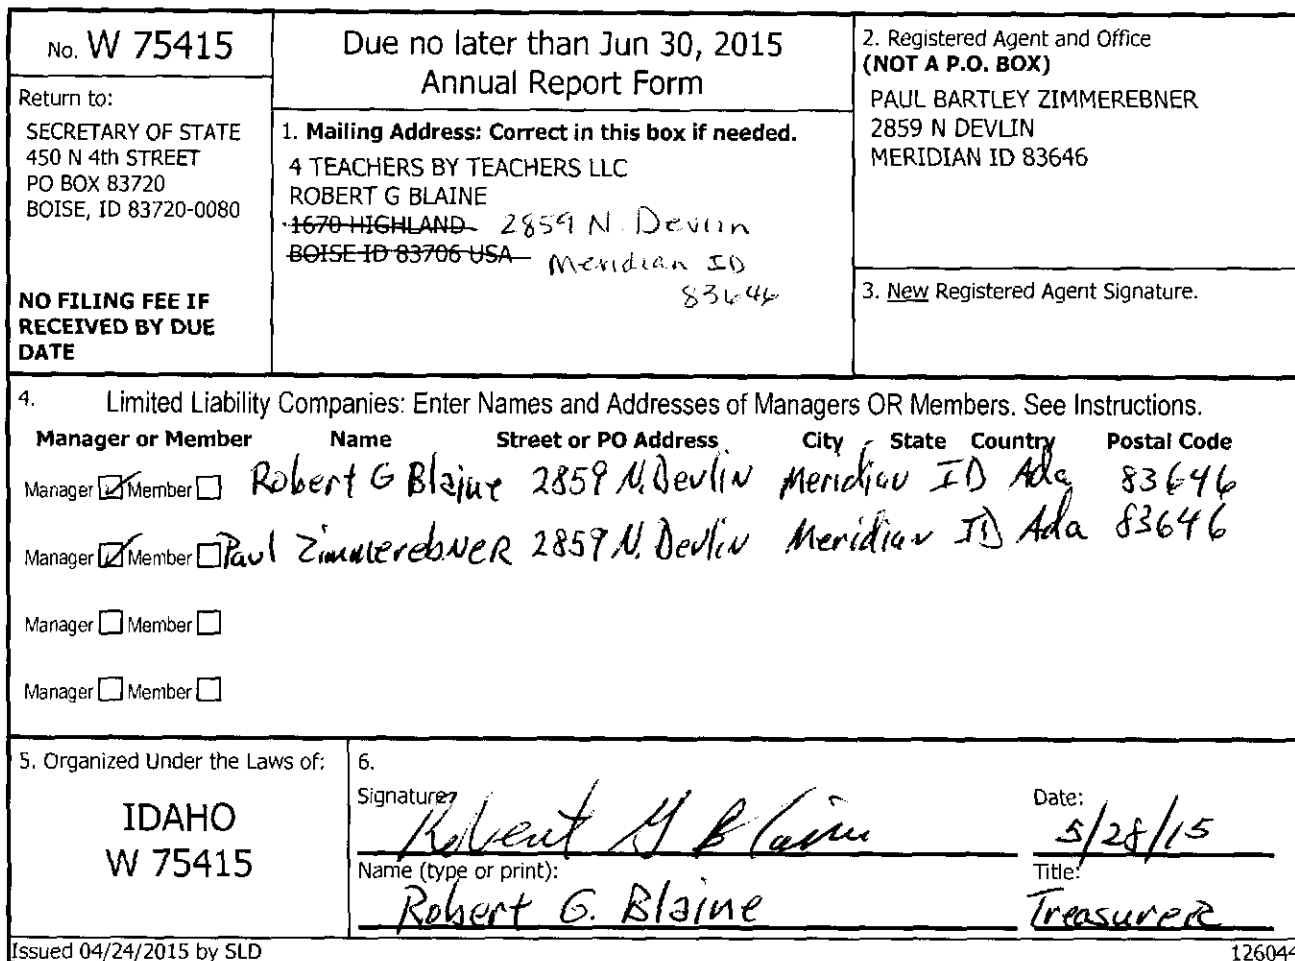 No. W 75415
Return to:
SECRETARY OF STATE
450 N 4th STREET
PO BOX 83720
BOISE, ID 83720-0080
NO FILING FEE IF
RECEIVED BY DUE
DATE
Due no later than Jun 30, 2015
Annual Report Form
1. Mailing Address: Correct in this box if needed.
4 TEACHERS BY TEACHERS LLC
ROBERT G BLAINE
1670 HIGHLAND 2859 N. Devlin
BOISE ID 83706 USA Meridian ID
83646
2. Registered Agent and Office
(NOT A P.O. BOX)
PAUL BARTLEY ZIMMEREBNER
2859 N DEVLIN
MERIDIAN ID 83646
3. New Registered Agent Signature.
4. Limited Liability Companies: Enter Names and Addresses of Managers OR Members. See Instructions.
Manager or Member Name Street or PO Address City State Country Postal Code
Manager Member Robert G Blaine 2859 N. Devlin Meridian ID Ada 83646
Manager Member Paul Zimmerebner 2859 N. Devlin Meridian ID Ada 83646
Manager Member
Manager Member
5. Organized Under the Laws of:
IDAHO
W 75415
6.
Signature: Robert G Blaine
Date: 5/28/15
Name (type or print): Robert G. Blaine
Title: Treasurer
Issued 04/24/2015 by SLD
126044